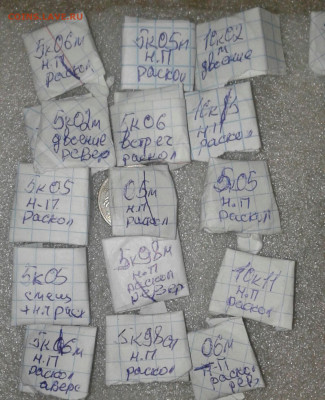 5к06м
н.П
раскол
5к05м
н.П
раскол
10к02
м
двоение
5к02м
двоение
ревер
5к06
встреч
раскол
10к13
н.П
раскол
5к05
н-П
раскол
05м
н.П
раскол
5к05
н.П
раскол
5к98м
н.П
раскол
ревер
5к05
смещ
+н.П раск
10к11
н.П
раскол
5к06м
н.П
раскол
аверс
5к98сп
н.П
раскол
06м
н-П
раскол
рев